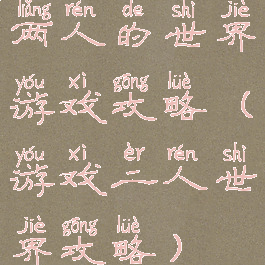 liǎng rén de shì jiè
两人的世界
yóu xì gōng lüè
游戏攻略（
yóu xì èr rén shì
游戏二人世
jiè gōng lüè
界攻略）